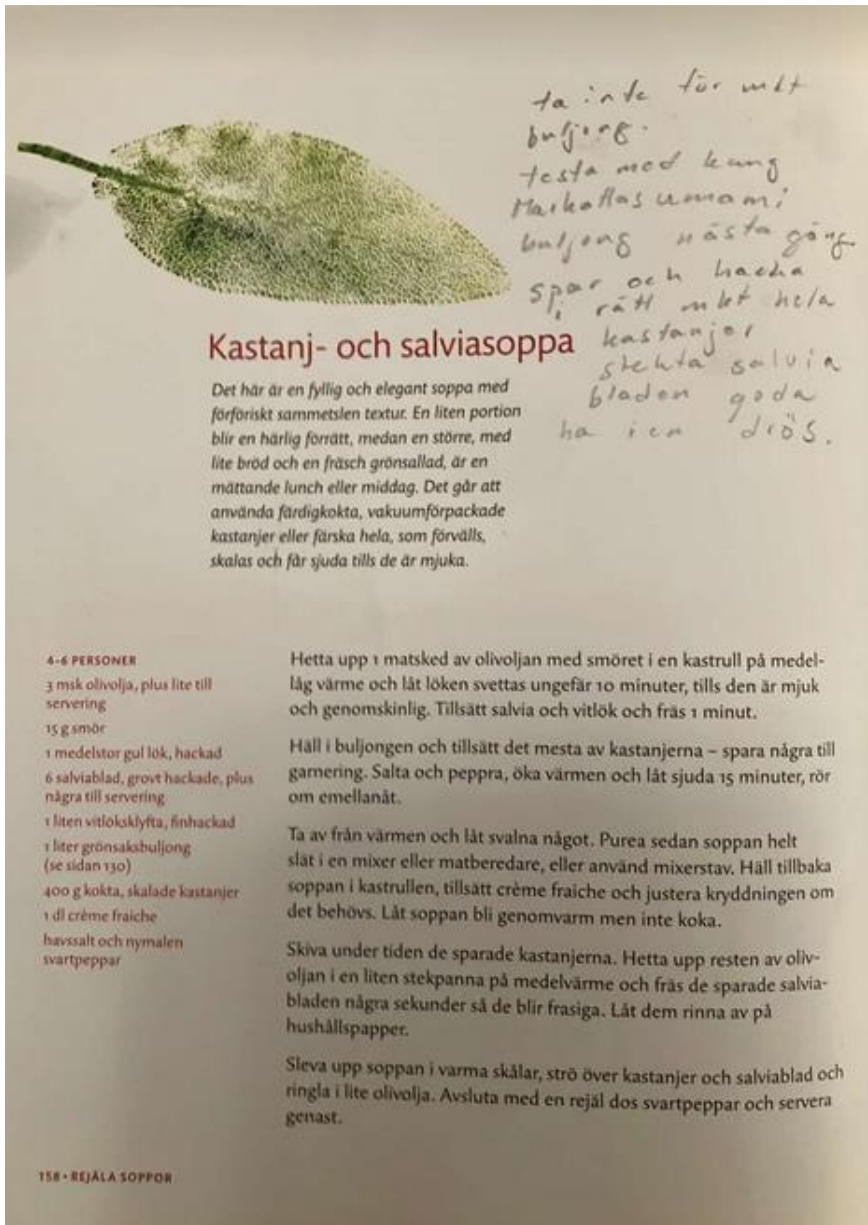 ta inte för mkt
buljong.
testa med kung
Markattas umami
buljong nästa gång.
spar och hacka
i rätt mkt hela
kastanjor
stekta salvia
bladen goda
ha i en drös.
Kastanj- och salviasoppa
Det här är en fyllig och elegant soppa med
förföriskt sammetslen textur. En liten portion
blir en härlig förrätt, medan en större, med
lite bröd och en fräsch grönsallad, är en
mättande lunch eller middag. Det går att
använda färdigkokta, vakuumförpackade
kastanjer eller färska hela, som förvälls,
skalas och får sjuda tills de är mjuka.
4-6 PERSONER
3 msk olivolja, plus lite till
servering
15 g smör
1 medelstor gul lök, hackad
6 salviablad, grovt hackade, plus
några till servering
1 liten vitlöksklyfta, finhackad
1 liter grönsaksbuljong
(se sidan 130)
400 g kokta, skalade kastanjer
1 dl crème fraiche
havssalt och nymalen
svartpeppar
Hetta upp 1 matsked av olivoljan med smöret i en kastrull på medel-
låg värme och låt löken svettas ungefär 10 minuter, tills den är mjuk
och genomskinlig. Tillsätt salvia och vitlök och fräs 1 minut.
Häll i buljongen och tillsätt det mesta av kastanjerna – spara några till
garnering. Salta och peppra, öka värmen och låt sjuda 15 minuter, rör
om emellanåt.
Ta av från värmen och låt svalna något. Purea sedan soppan helt
slät i en mixer eller matberedare, eller använd mixerstav. Häll tillbaka
soppan i kastrullen, tillsätt crème fraiche och justera kryddningen om
det behövs. Låt soppan bli genomvarm men inte koka.
Skiva under tiden de sparade kastanjerna. Hetta upp resten av oliv-
oljan i en liten stekpanna på medelvärme och fräs de sparade salvia-
bladen några sekunder så de blir frasiga. Låt dem rinna av på
hushållspapper.
Sleva upp soppan i varma skålar, strö över kastanjer och salviablad och
ringla i lite olivolja. Avsluta med en rejäl dos svartpeppar och servera
genast.
158 • REJÄLA SOPPOR